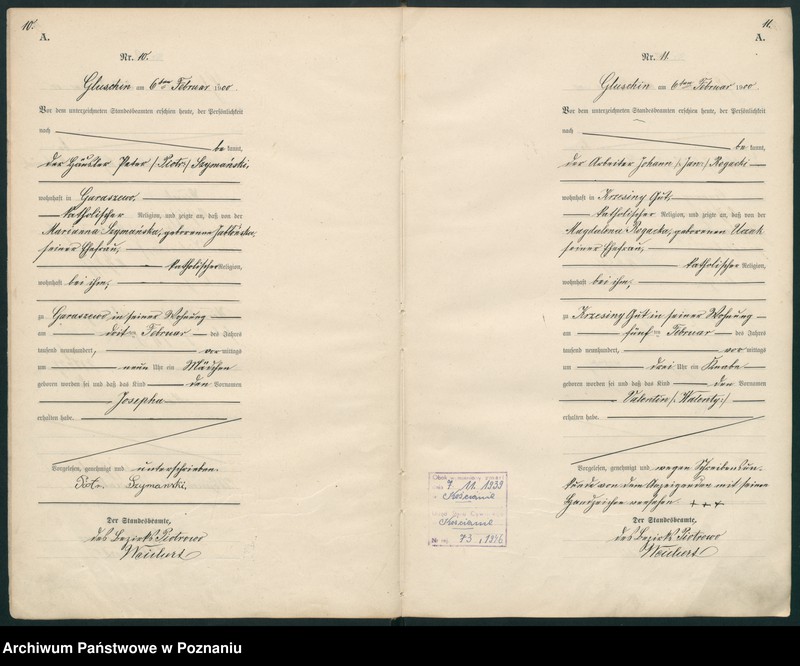 10.
A.
Nr. 10.
Gluschin am 6ten Februar 1900
Vor dem unterzeichneten Standesbeamten erschien heute, der Persönlichkeit
nach
be kannt,
der Häusler Peter /:Piotr:/ Szymański,
wohnhaft in Garaszewo,
katholischer Religion, und zeigte an, daß von der
Marianna Szymańska, geborenen
seiner Ehefrau,
katholischer Religion,
wohnhaft bei ihm,
zu Garaszewo in seiner Wohnung
am dritten Februar des Jahres
tausend neunhundert, vor mittags
um neun Uhr ein Mädchen
geboren worden sei und daß das Kind den Vornamen
Josepha
erhalten habe.
Vorgelesen, genehmigt und unterschrieben.
Piotr Szymański.
Der Standesbeamte,
des Bezirks Piotrowo
Weichert
11.
A.
Nr. 11.
Gluschin am 6ten Februar 1900
Vor dem unterzeichneten Standesbeamten erschien heute, der Persönlichkeit
nach
be kannt,
der Arbeiter Johann /:Jan:/ Rogacki
wohnhaft in Krzesiny Gut,
katholischer Religion, und zeigte an, daß von der
Magdalena Rogacka, geborenen
seiner Ehefrau,
katholischer Religion,
wohnhaft bei ihm,
zu Krzesiny Gut in seiner Wohnung
am fünften Februar des Jahres
tausend neunhundert, vor mittags
um drei Uhr ein Knabe
geboren worden sei und daß das Kind den Vornamen
Valentin /:Walenty:/
erhalten habe.
Vorgelesen, genehmigt und wegen Schreibensun-
kunde von dem Anzeigenden mit seinem
Handzeichen versehen. + + +
Der Standesbeamte,
des Bezirks Piotrowo
Weichert
Archiwum Państwowe w Poznaniu